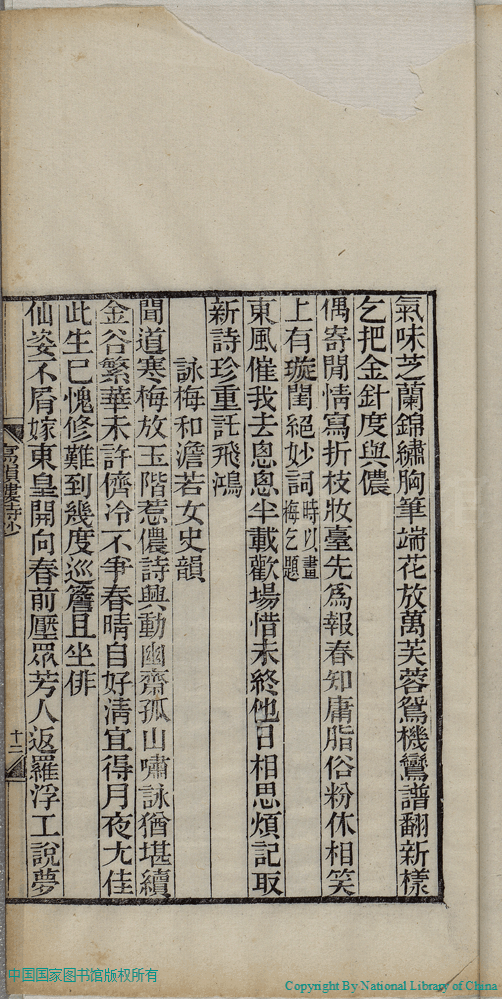 氣味芝蘭錦繡胸筆端花放萬芙蓉鴛機鸞譜翻新樣
乞把金針度與儂
偶寄閒情寫折枝妝臺先為報春知庸脂俗粉休相笑
上有璇閨絕妙詞時以畫梅乞題
東風催我去悤悤半載歡場惜未終他日相思煩記取
新詩珍重託飛鴻
詠梅和澹若女史韻
聞道寒梅放玉階惹儂詩興動幽齋孤山嘯詠猶堪續
金谷繁華未許儕冷不爭春晴自好清宜得月夜尤佳
此生已愧修難到幾度巡簷且坐俳
仙姿不屑嫁東皇開向春前壓眾芳人返羅浮工說夢
寫韻樓詩鈔
十二
中国国家图书馆版权所有
Copyright By National Library of China